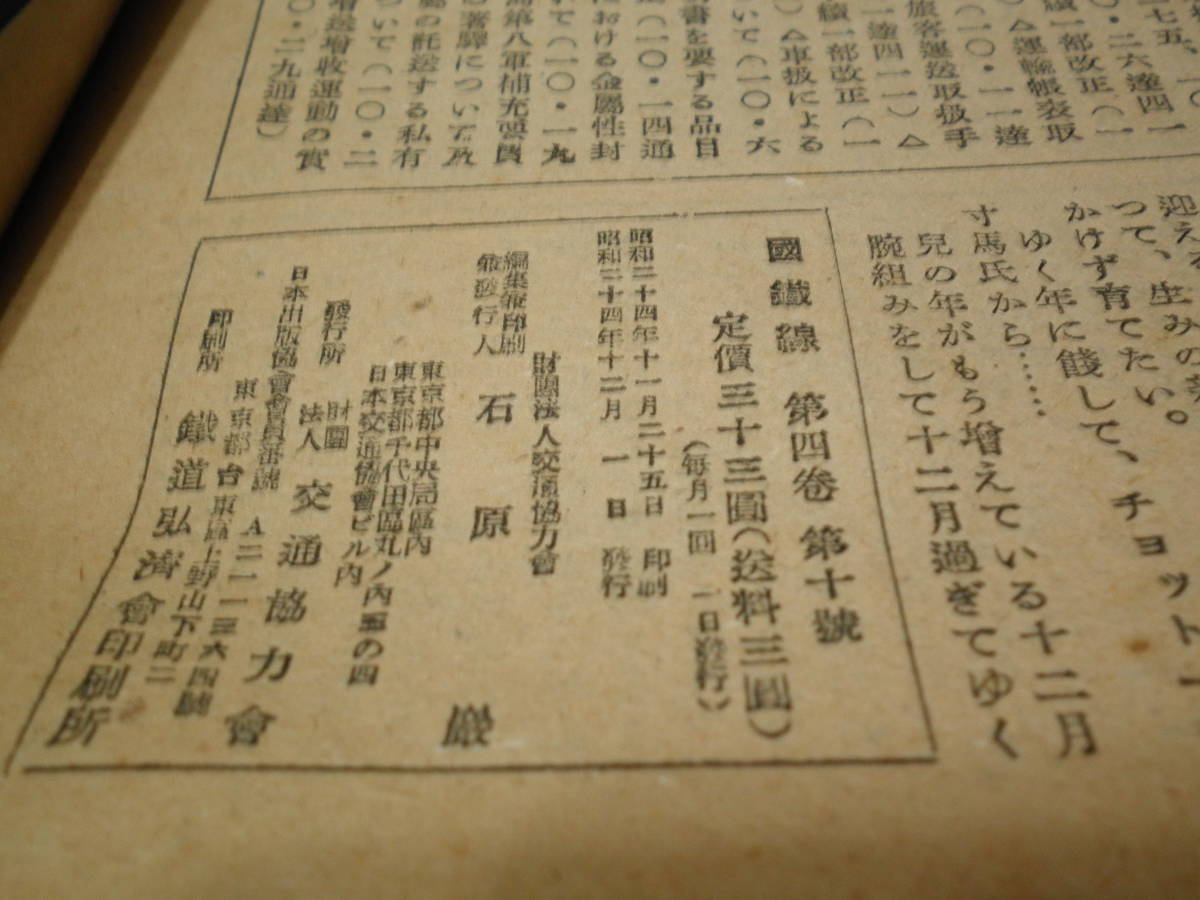 七五、一〇
〇・二六達四一
續一部改正(一
)△運輸帳表取
(一〇・一一達
旅客運送取扱手
一達四一一)△
續一部改正(一
)△車扱による
いて(一〇・六
書を要する品目
(一〇・一四通
における金屬性封
いて(一〇・一九
第八軍補充需品
着驛について及
の託送する私有
ついて(一〇・二
増送増收運動の實
〇・二九通達)
迎える
つて、生みの
かけず育てたい。
ゆく年に餞して、チョット一
寸馬氏から……
兒の年がもう増えている十二月
腕組みをして十二月過ぎてゆく
國鐵線 第四卷 第十號
定價三十三圓(送料三圓)
(毎月一回 一日發行)
昭和二十四年十一月二十五日 印刷
昭和二十四年十二月 一 日 發行
財團法人交通協力會
編集兼印刷
兼發行人 石原 巖
東京都中央局區內
東京都千代田區丸ノ內三の四
日本交通協會ビル內
發行所 財團法人 交通協力會
日本出版協會會員番號 A二一一三六四號
東京都台東區上野山下町二
印刷所 鐵道弘濟會印刷所